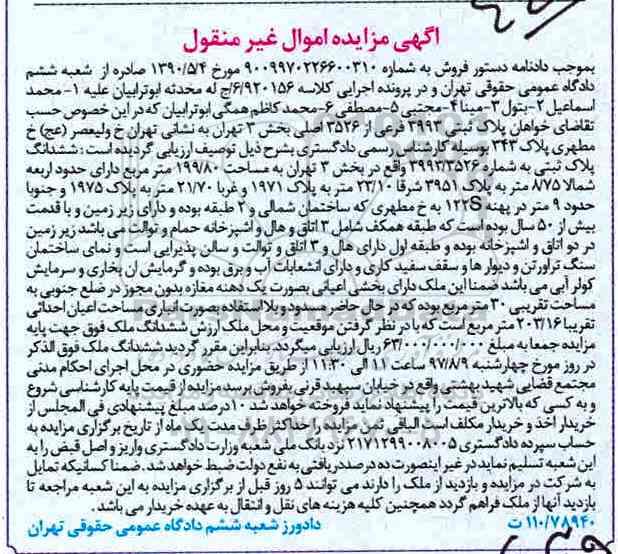 آگهی مزایده اموال غیر منقول
بموجب دادنامه دستور فروش به شماره ۹۰۰۹۹۷۰۲۲۶۶۰۰۳۱۰ مورخ ۱۳۹۰/۵/۴ صادره از شعبه ششم
دادگاه عمومی حقوقی تهران و در پرونده اجرایی کلاسه ۶/۹۲۰۱۵۶/ج له محدثه ابوترابیان علیه ۱-محمد
اسماعیل ۲-بتول ۳-مینا ۴-مجتبی ۵-مصطفی ۶-محمد کاظم همگی ابوترابیان که در این خصوص حسب
تقاضای خواهان پلاک ثبتی ۳۹۹۳ فرعی از ۳۵۲۶ اصلی بخش ۳ تهران به نشانی تهران خ ولیعصر (عج) خ
مطهری پلاک ۳۴۳ بوسیله کارشناس رسمی دادگستری بشرح ذیل توصیف ارزیابی گردیده است: ششدانگ
پلاک ثبتی به شماره ۳۹۹۳/۳۵۲۶ واقع در بخش ۳ تهران به مساحت ۱۹۹/۸۰ متر مربع دارای حدود اربعه
شمالا ۸/۷۵ متر به پلاک ۳۹۵۱ شرقا ۲۳/۱۰ متر به پلاک ۱۹۷۱ و غربا ۲۱/۷۰ متر به پلاک ۱۹۷۵ و جنوبا
حدود ۹ متر در پهنه ۱۲۲S به خ مطهری که ساختمان شمالی و ۲ طبقه بوده و دارای زیر زمین و با قدمت
بیش از ۵۰ سال بوده است که طبقه همکف شامل ۳ اتاق و هال و آشپزخانه حمام و توالت می باشد زیر زمین
در دو اتاق و آشپزخانه بوده و طبقه اول دارای هال و ۳ اتاق و توالت و سالن پذیرایی است و نمای ساختمان
سنگ تراورتن و دیوار ها و سقف سفید کاری و دارای انشعابات آب و برق بوده و گرمایش آن بخاری و سرمایش
کولر آبی می باشد ضمنا این ملک دارای بخشی اعیانی بصورت یک دهنه مغازه بدون مجوز در ضلع جنوبی به
مساحت تقریبی ۳۰ متر مربع بوده که در حال حاضر مسدود و بلا استفاده بصورت انباری مساحت اعیان احداثی
تقریبا ۲۰۳/۱۶ متر مربع است که با در نظر گرفتن موقعیت و محل ملک ارزش ششدانگ ملک فوق جهت پایه
مزایده جمعا به مبلغ ۶۳/۰۰۰/۰۰۰/۰۰۰ ریال ارزیابی میگردد. بنابراین مقرر گردید ششدانگ ملک فوق الذکر
در روز مورخ چهارشنبه ۹۷/۸/۹ ساعت ۱۱ الی ۱۱:۳۰ از طریق مزایده حضوری در محل اجرای احکام مدنی
مجتمع قضایی شهید بهشتی واقع در خیابان سپهبد قرنی بفروش برسد مزایده از قیمت پایه کارشناسی شروع
و به کسی که بالاترین قیمت را پیشنهاد نماید فروخته خواهد شد ۱۰ درصد مبلغ پیشنهادی فی المجلس از
خریدار اخذ و خریدار مکلف است الباقی ثمن مزایده را حداکثر ظرف مدت یک ماه از تاریخ برگزاری مزایده به
حساب سپرده دادگستری ۲۱۷۱۲۹۹۰۰۸۰۰۵ نزد بانک ملی شعبه وزارت دادگستری واریز و اصل قبض را به
این شعبه تسلیم نماید در غیر اینصورت ده درصد دریافتی به نفع دولت ضبط خواهد شد. ضمنا کسانیکه تمایل
به شرکت در مزایده و بازدید از ملک را دارند می توانند ۵ روز قبل از برگزاری مزایده به این شعبه مراجعه تا
بازدید آنها از ملک فراهم گردد همچنین کلیه هزینه های نقل و انتقال به عهده خریدار می باشد.
۱۱۰/۷۸۹۴۰ ت دادورز شعبه ششم دادگاه عمومی حقوقی تهران